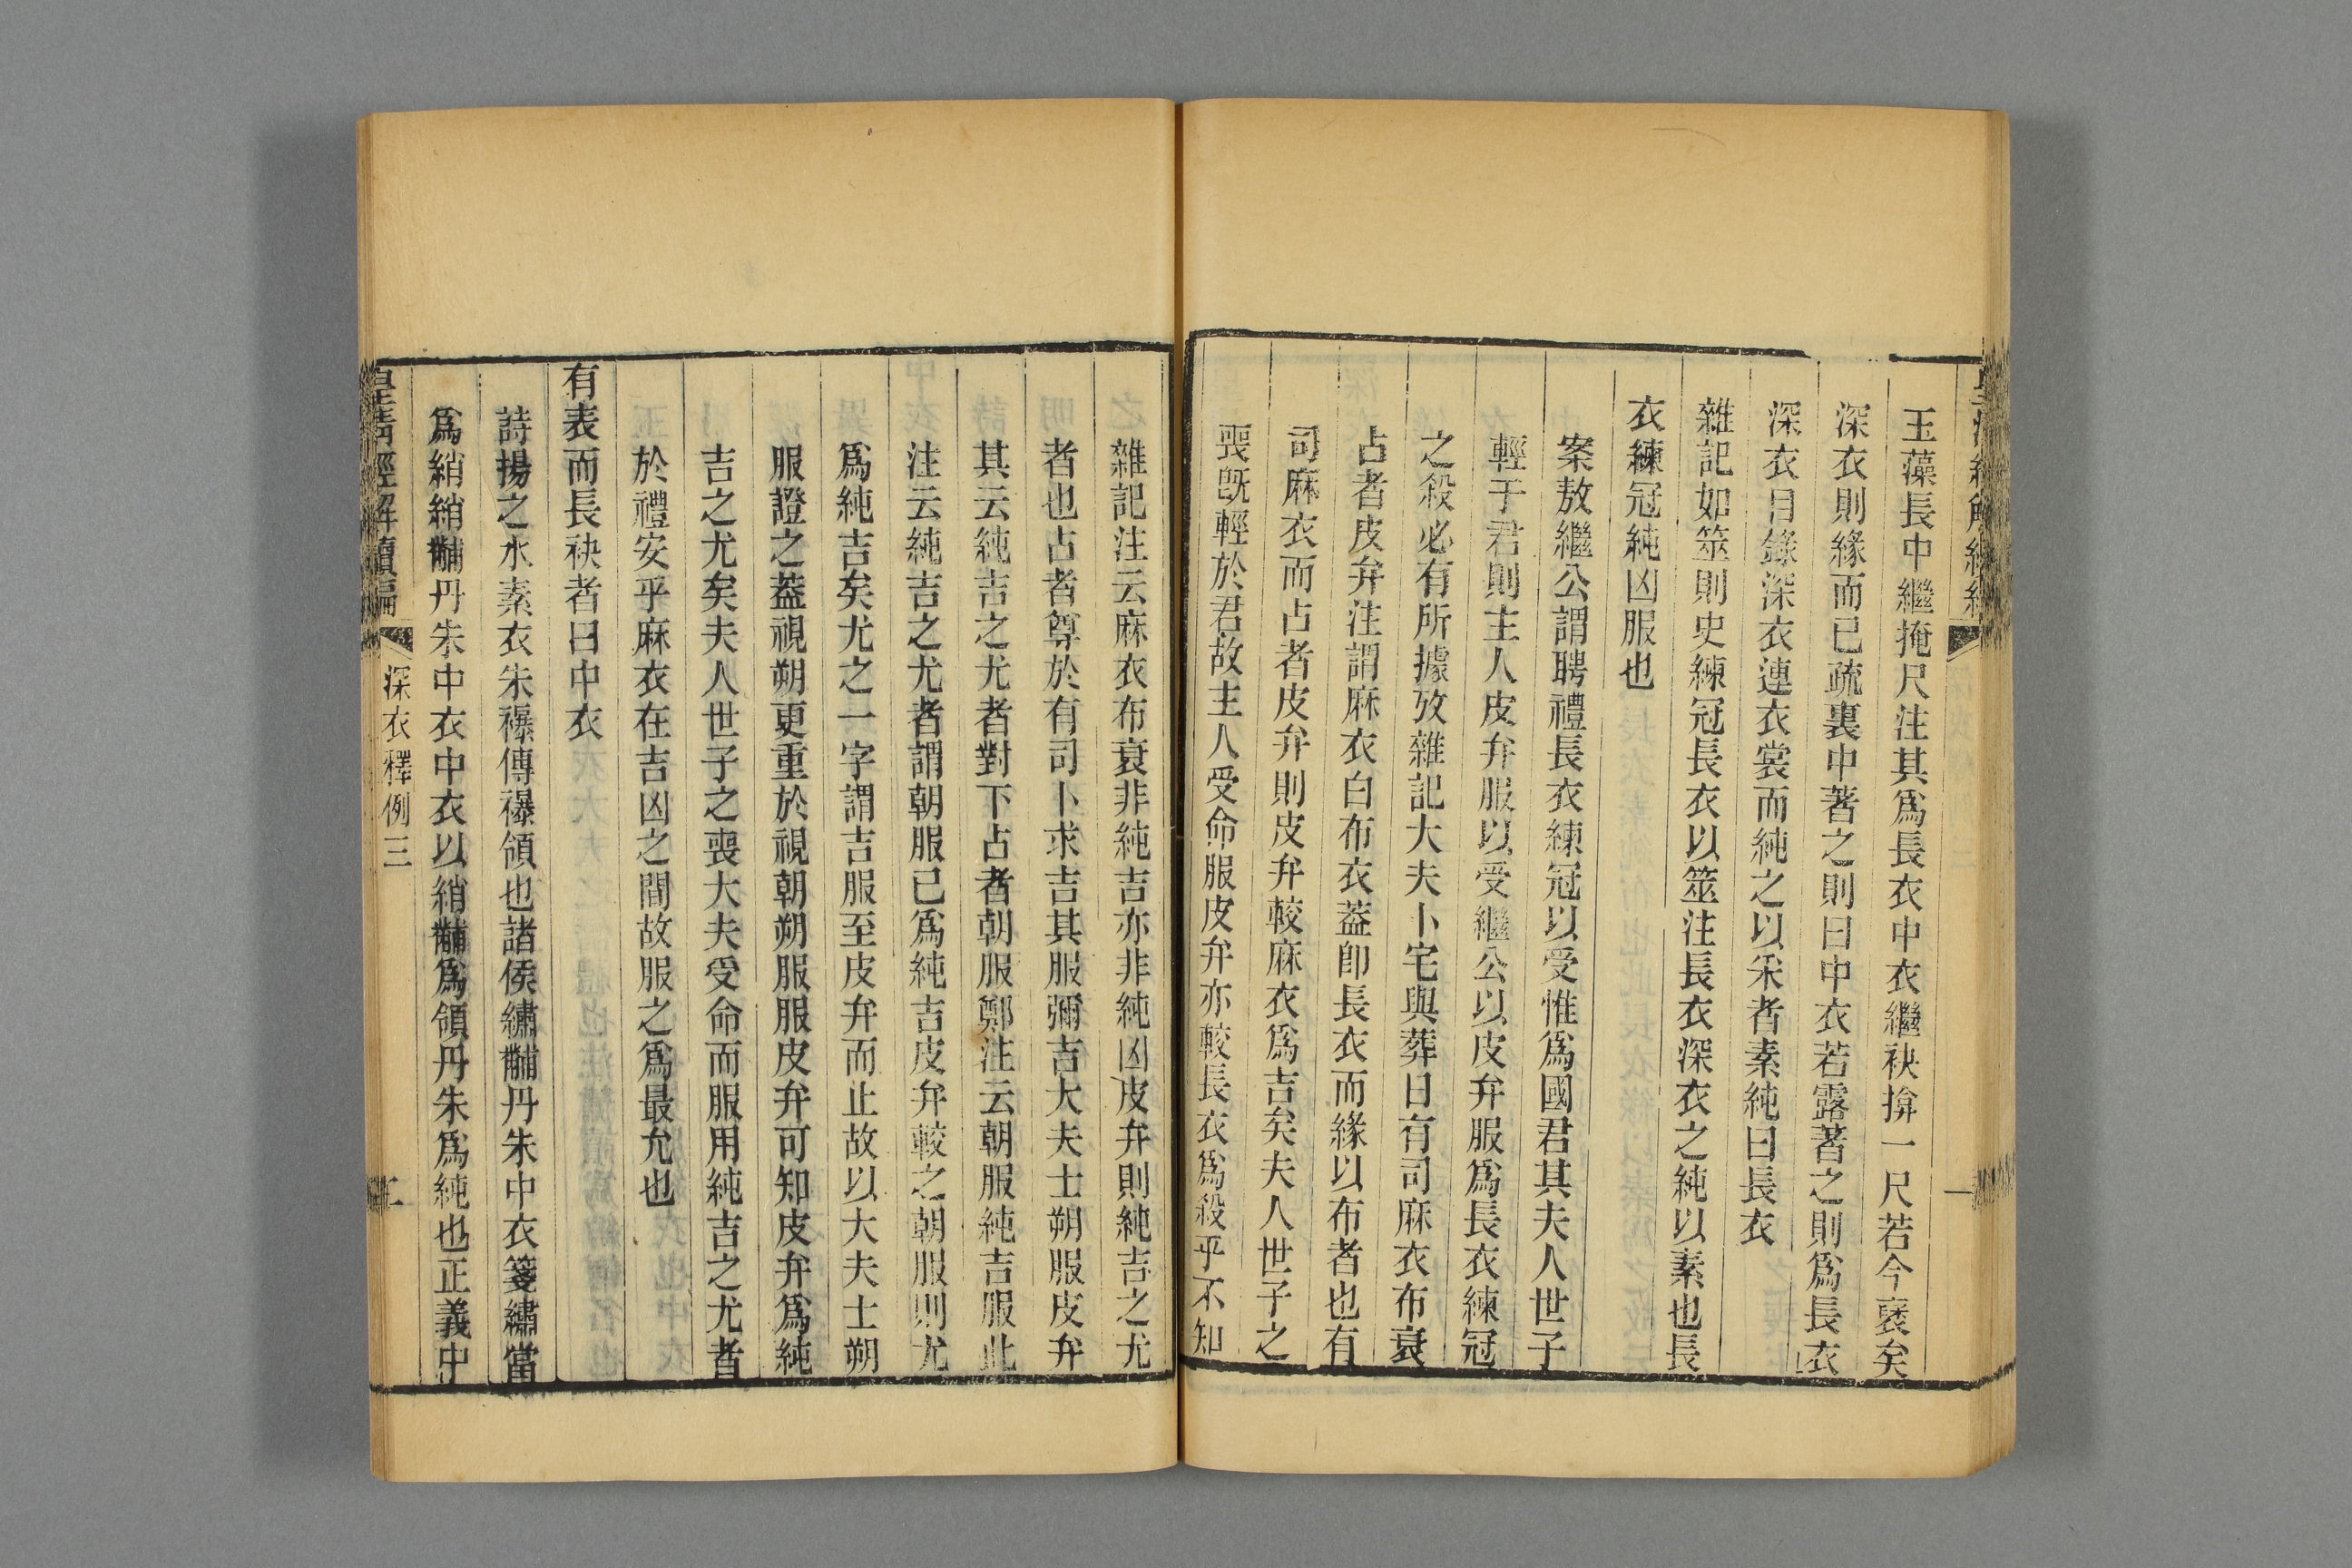 玉藻長中繼掩尺注其爲長衣中衣繼袂揜一尺若今褎矣
深衣則緣而已疏裏中著之則曰中衣若露著之則爲長衣
深衣目錄深衣連衣裳而純之以采者素純曰長衣
雜記如筮則史練冠長衣以筮注長衣深衣之純以素也長
衣練冠純凶服也
案敖繼公謂聘禮長衣練冠以受惟爲國君其夫人世子
輕于君則主人皮弁服以受繼公以皮弁服爲長衣練冠
之殺必有所據攷雜記大夫卜宅與葬日有司麻衣布衰
占者皮弁注謂麻衣白布衣葢卽長衣而緣以布者也有
司麻衣而占者皮弁則皮弁較麻衣爲吉矣夫人世子之
喪旣輕於君故主人受命服皮弁亦較長衣爲殺乎不知
雜記注云麻衣布衰非純吉亦非純凶皮弁則純吉之尤
者也占者尊於有司卜求吉其服彌吉大夫士朔服皮弁
其云純吉之尤者對下占者朝服鄭注云朝服純吉服此
注云純吉之尤者謂朝服已爲純吉皮弁較之朝服則尤
爲純吉矣尤之一字謂吉服至皮弁而止故以大夫士朔
服證之葢視朔更重於視朝朔服服皮弁可知皮弁爲純
吉之尤矣夫人世子之喪大夫受命而服用純吉之尤者
於禮安乎麻衣在吉凶之間故服之爲最允也
有表而長袂者曰中衣
詩揚之水素衣朱襮傳襮領也諸侯繡黼丹朱中衣箋繡當
爲綃綃黼丹朱中衣中衣以綃黼爲領丹朱爲純也正義中
皇清經解續編
深衣釋例三
二